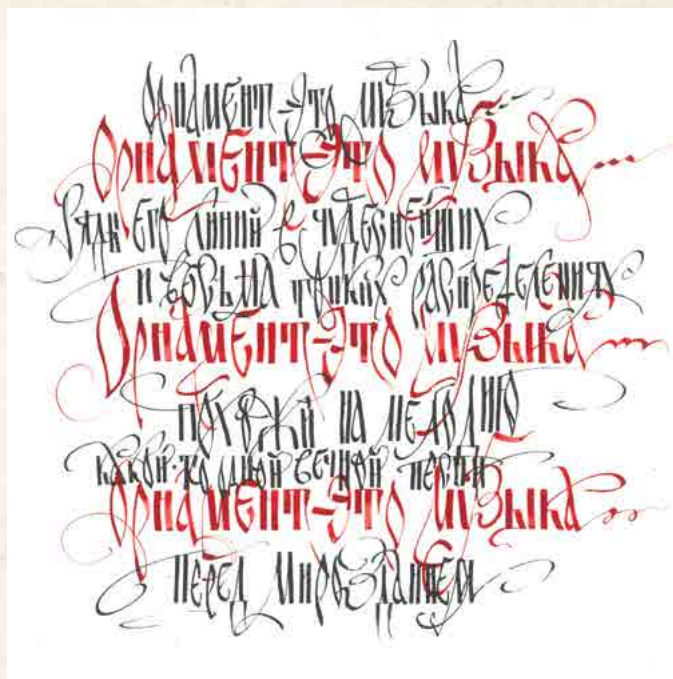 Орнамент-Это музыка
Орнамент-Это музыка
Ряд его линий в чудеснейших
и весьма тонких распределениях
Орнамент-Это музыка
похожий на мелодию
какой-то одной вечной песни
Орнамент-Это музыка
перед Мирозданием